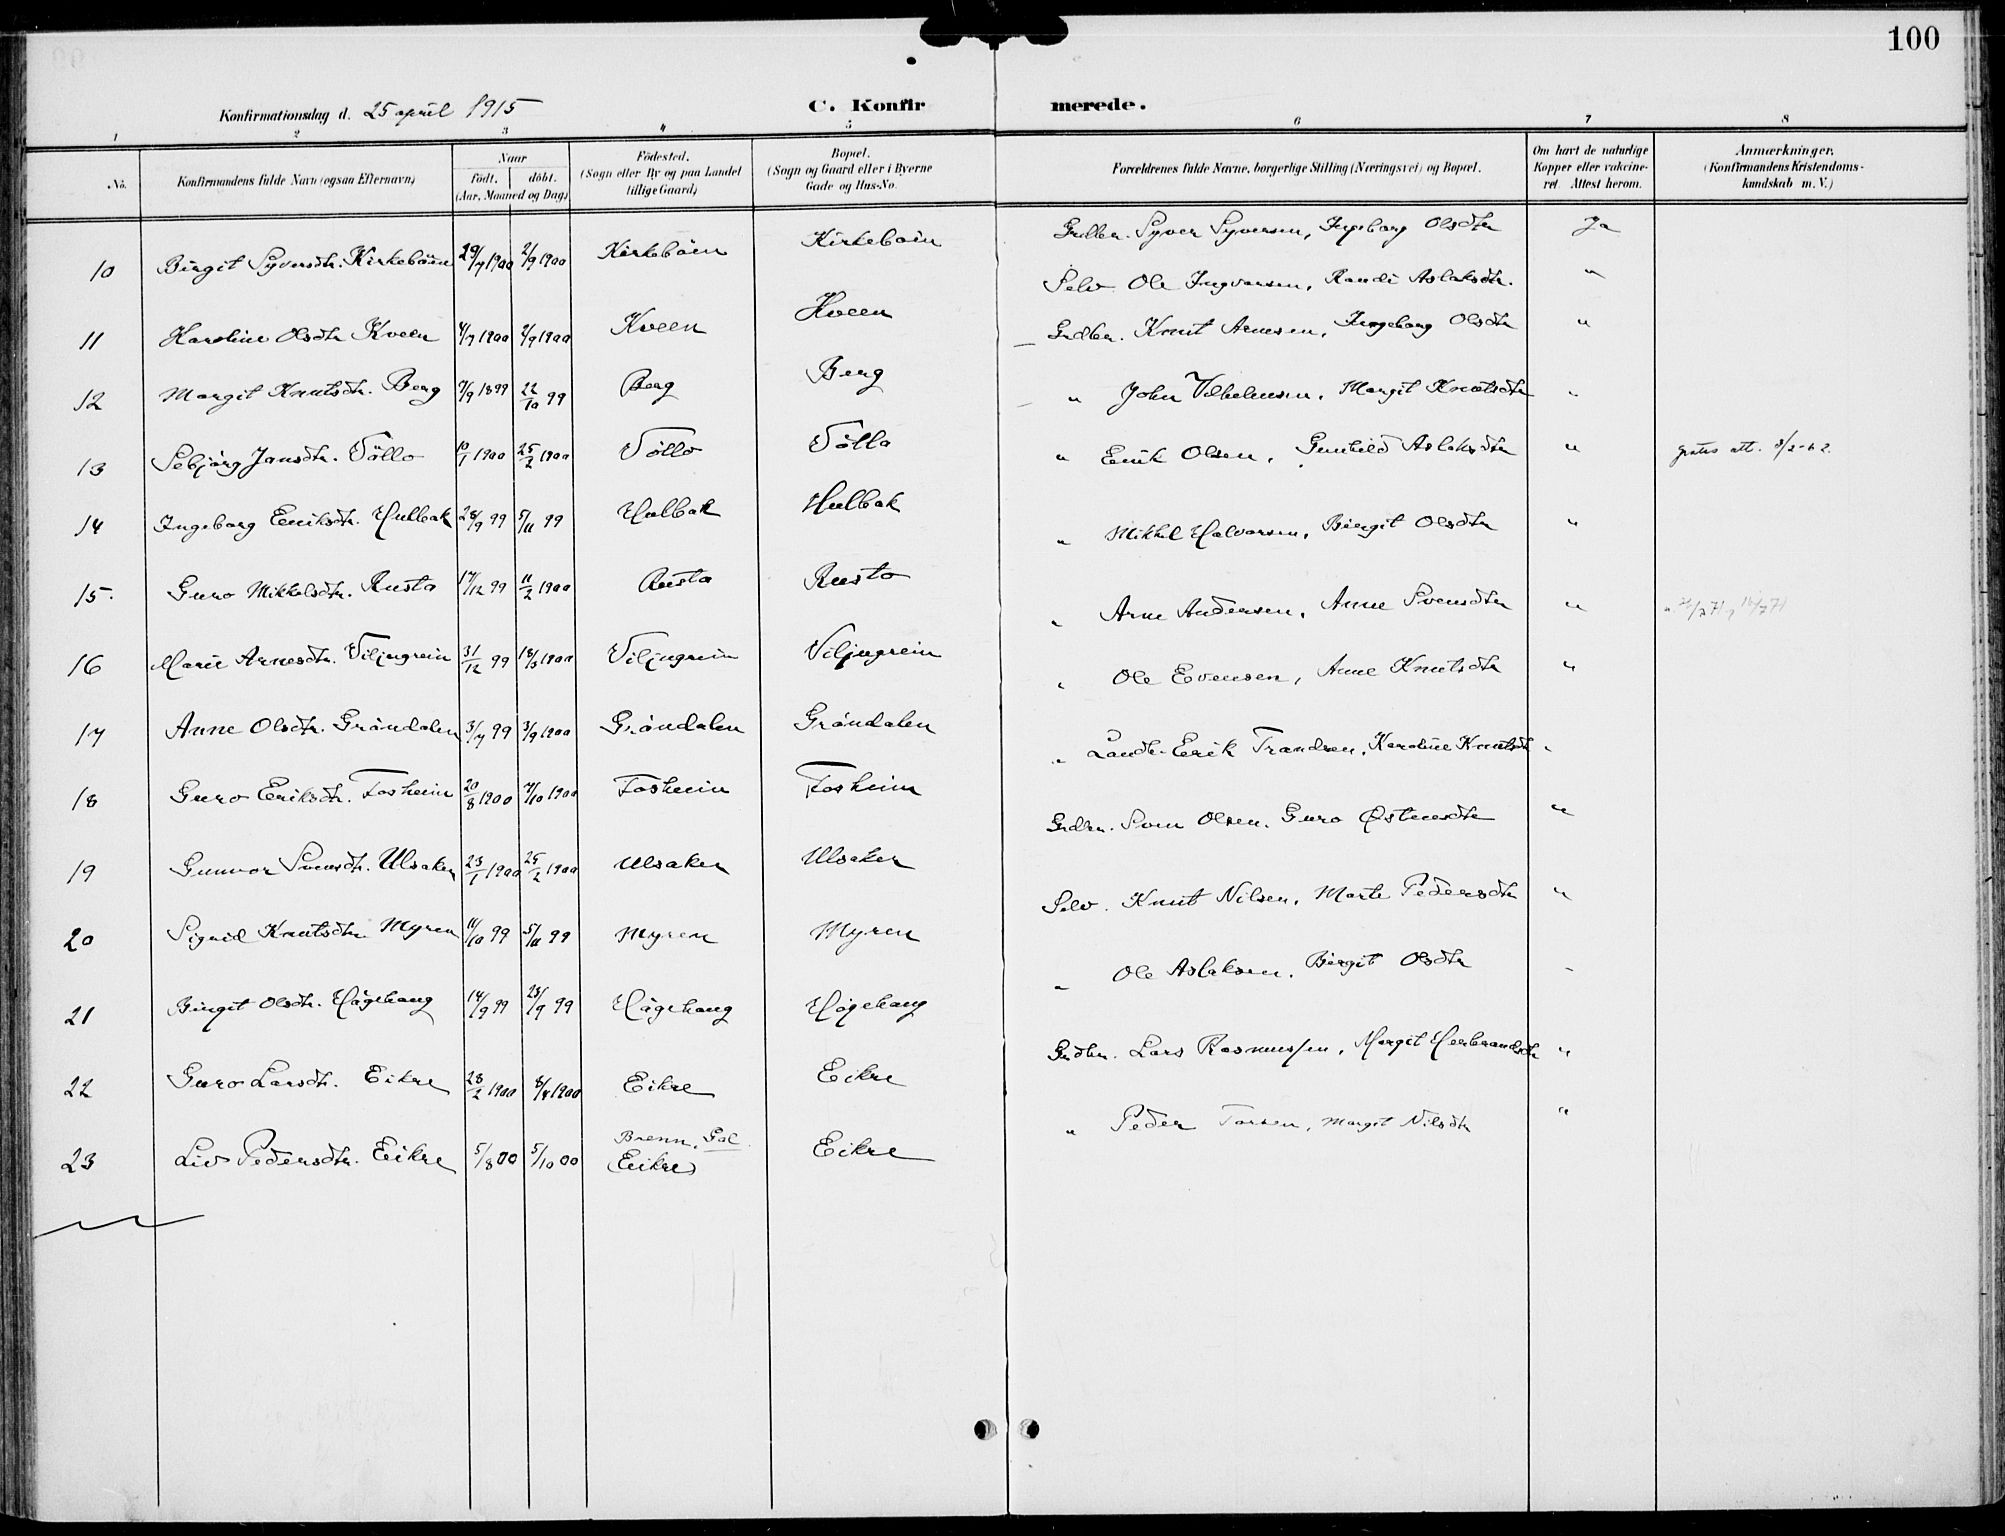 100
Konfirmationsdag d. 25 april 1915
C. Konfirmerede.
1 2 3 4 5 6 7 8
No. Konfirmandens fulde Navn (ogsaa Efternavn) Naar født. døbt. (Aar, Maaned og Dag) Födested. (Sogn eller By og paa Landet tillige Gaard) Bopæl. (Sogn og Gaard eller i Byerne Gade og Hus-No. Forældrenes fulde Navne, borgerlige Stilling (Næringsvei) og Bopæl. Om havt de naturlige Kopper eller vakcineret. Attest herom. Anmærkninger. (Konfirmandens Kristendomskundskab m. V.)
10 Birgit Syversdtr. Kirkebøen 29/7 1900 2/9 1900 Kirkebøen Kirkebøen Grdbr. Syver Syversen, Ingeborg Olsdtr Ja
11 Karoline Olsdtr Kveen 4/7 1900 2/9 1900 Kveen Kveen Selv. Ole Ingvarsen, Randi Aslaksdtr. "
12 Margit Knutsdtr. Berg 7/9 1899 22/10 99 Berg Berg Grdbr. Knut Arnesen, Ingeborg Olsdtr "
13 Sebjörg Jonsdtr. Töllo 10/1 1900 25/2 1900 Töllo Töllo " John Vilhelmsen, Margit Knutsdtr "
14 Ingeborg Eriksdtr. Hulbak 28/9 99 5/11 99 Hulbak Hulbak " Erik Olsen, Gunhild Aslaksdtr " gratis att. 8/2-62.
15. Guro Mikkelsdtr. Rusto 17/12 99 11/2 1900 Rusto Rusto " Mikkel Halvorsen, Birgit Olsdtr "
16 Marie Arnesdtr. Viljugrein 31/12 99 18/3 1900 Viljugrein Viljugrein " Arne Andersen, Anne Svensdtr "
17 Anne Olsdtr. Gröndalen 3/7 99 3/9 1900 Gröndalen Gröndalen " Ole Evensen, Anne Knutsdtr "
18 Guro Eriksdtr. Fosheim 20/8 1900 7/10 1900 Fosheim Fosheim " Landh. Erik Trandsen, Karoline Knutsdt "
19 Gunvor Svensdtr. Ulsaker 23/1 1900 25/2 1900 Ulsaker Ulsaker Grdbr. Sven Olsen. Guro Østensdtr "
20 Sigrid Knutsdtr Myren 11/10 99 5/11 99 Myren Myren Selv. Knut Nilsen, Marte Pedersdtr "
21 Birgit Olsdtr. Hågehaug 14/9 99 23/9 99 Hågehaug Hågehaug " Ole Aslaksen, Birgit Olsdtr "
22 Guro Larsdtr. Eikre 23/2 1900 8/4 1900 Eikre Eikre Grdbr. Lars Rasmussen, Margit Herbrandsdtr "
23 Liv Pedersdtr. Eikre 5/8 00 5/10 00 Brenn, Gol (Eikre) Eikre " Peder Torsen, Margit Nilsdtr "